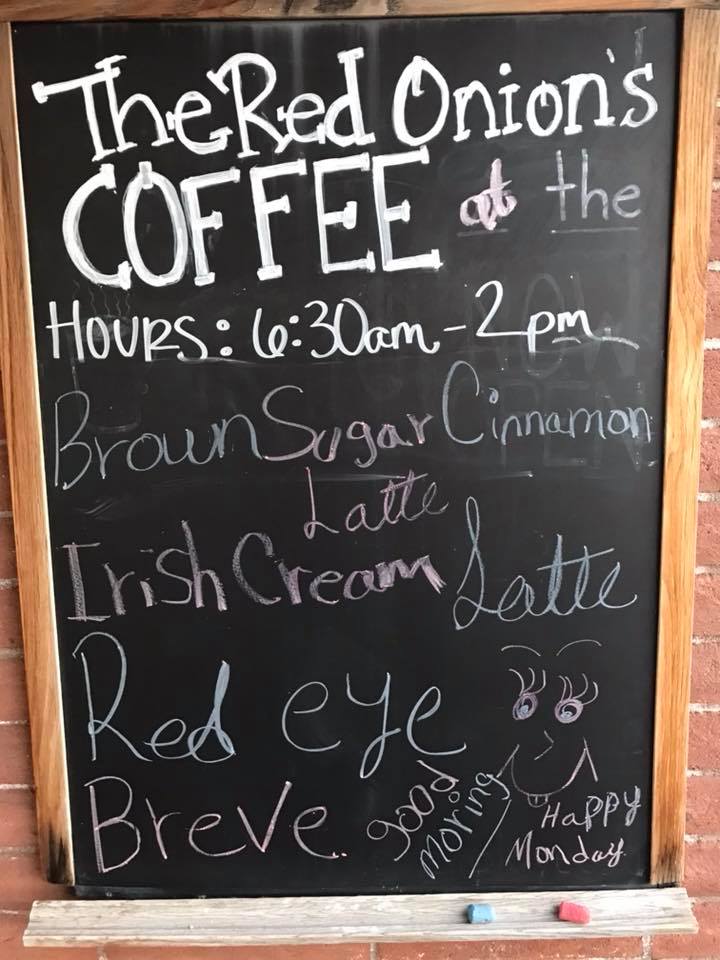 The Red Onion's
COFFEE at the
HOURS: 6:30am - 2pm
Brown Sugar Cinnamon
Latte
Irish Cream Latte
Red eye
Breve.
good
moring
Happy
Monday